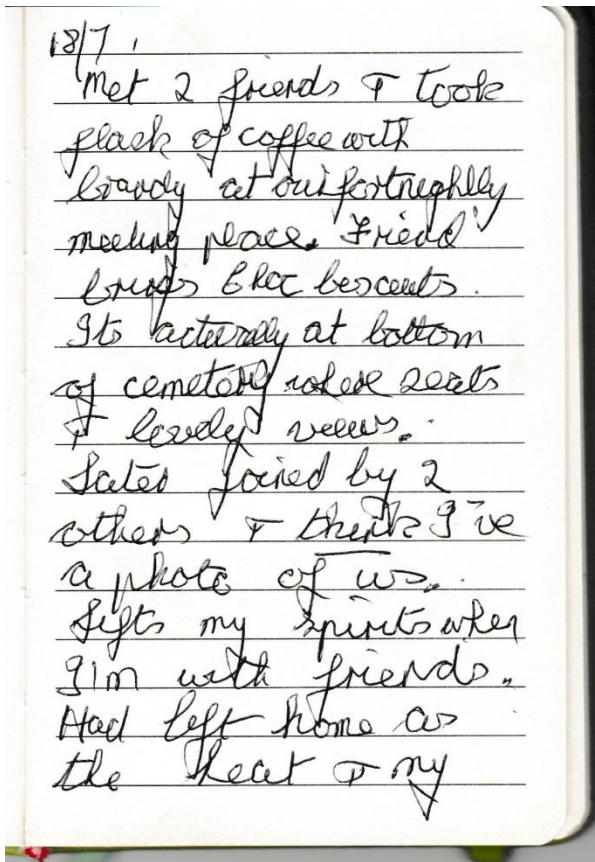 18/7,
Met 2 friends & took
flask of coffee with
brandy at our fortneghlly
meeting place. Friend
brings choc bescuits.
Its actually at bottom
of cemetery where seats
& lovely views.
Later joined by 2
others & think I've
a photo of us.
Lifts my spirits when
I'm with friends.
Had left home as
the heat & my